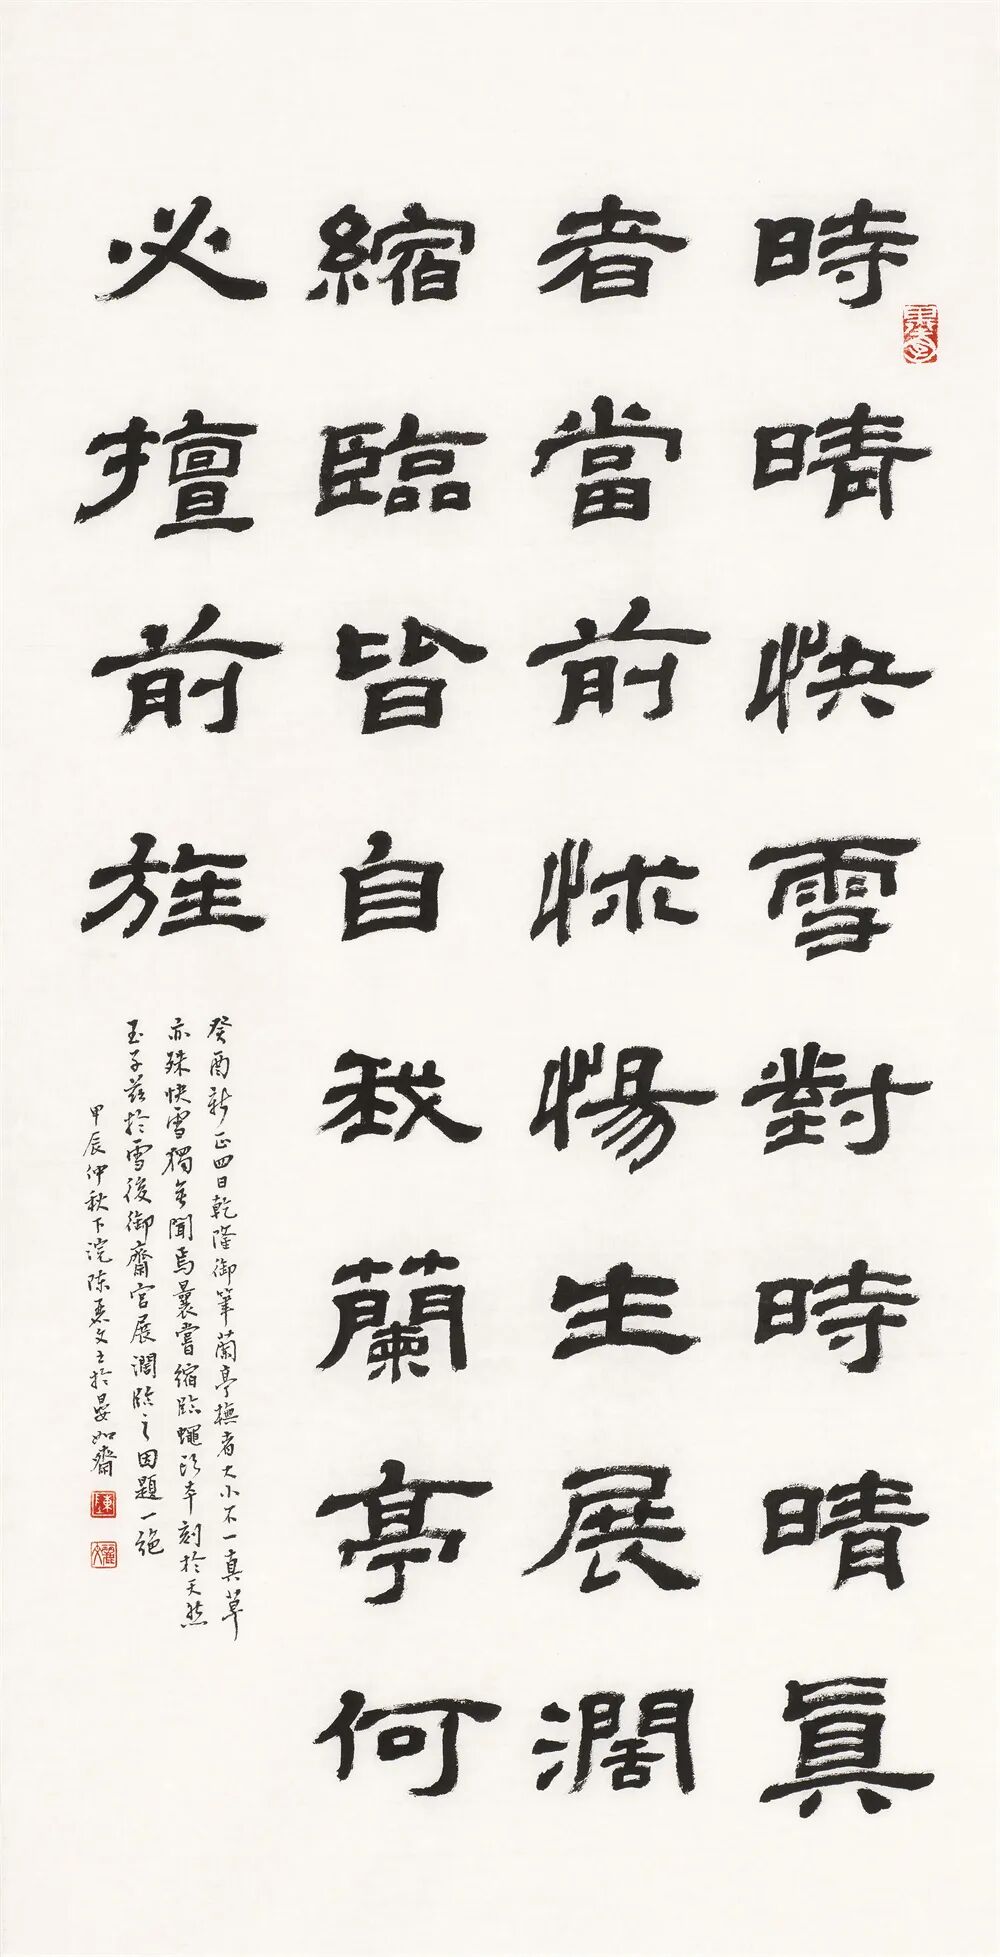 時晴快雪對時晴真
者當前怵惕生展濶
縮臨皆自我蘭亭何
必擅前旌
癸酉新正四日乾隆御筆蘭亭撫者大小不一真草
亦殊快雪獨無聞焉曩嘗縮臨蠅頭本刻於天然
玉子茲於雪後御齋宮展濶臨之因題一絕
甲辰仲秋下浣陈 文 於晏如齋